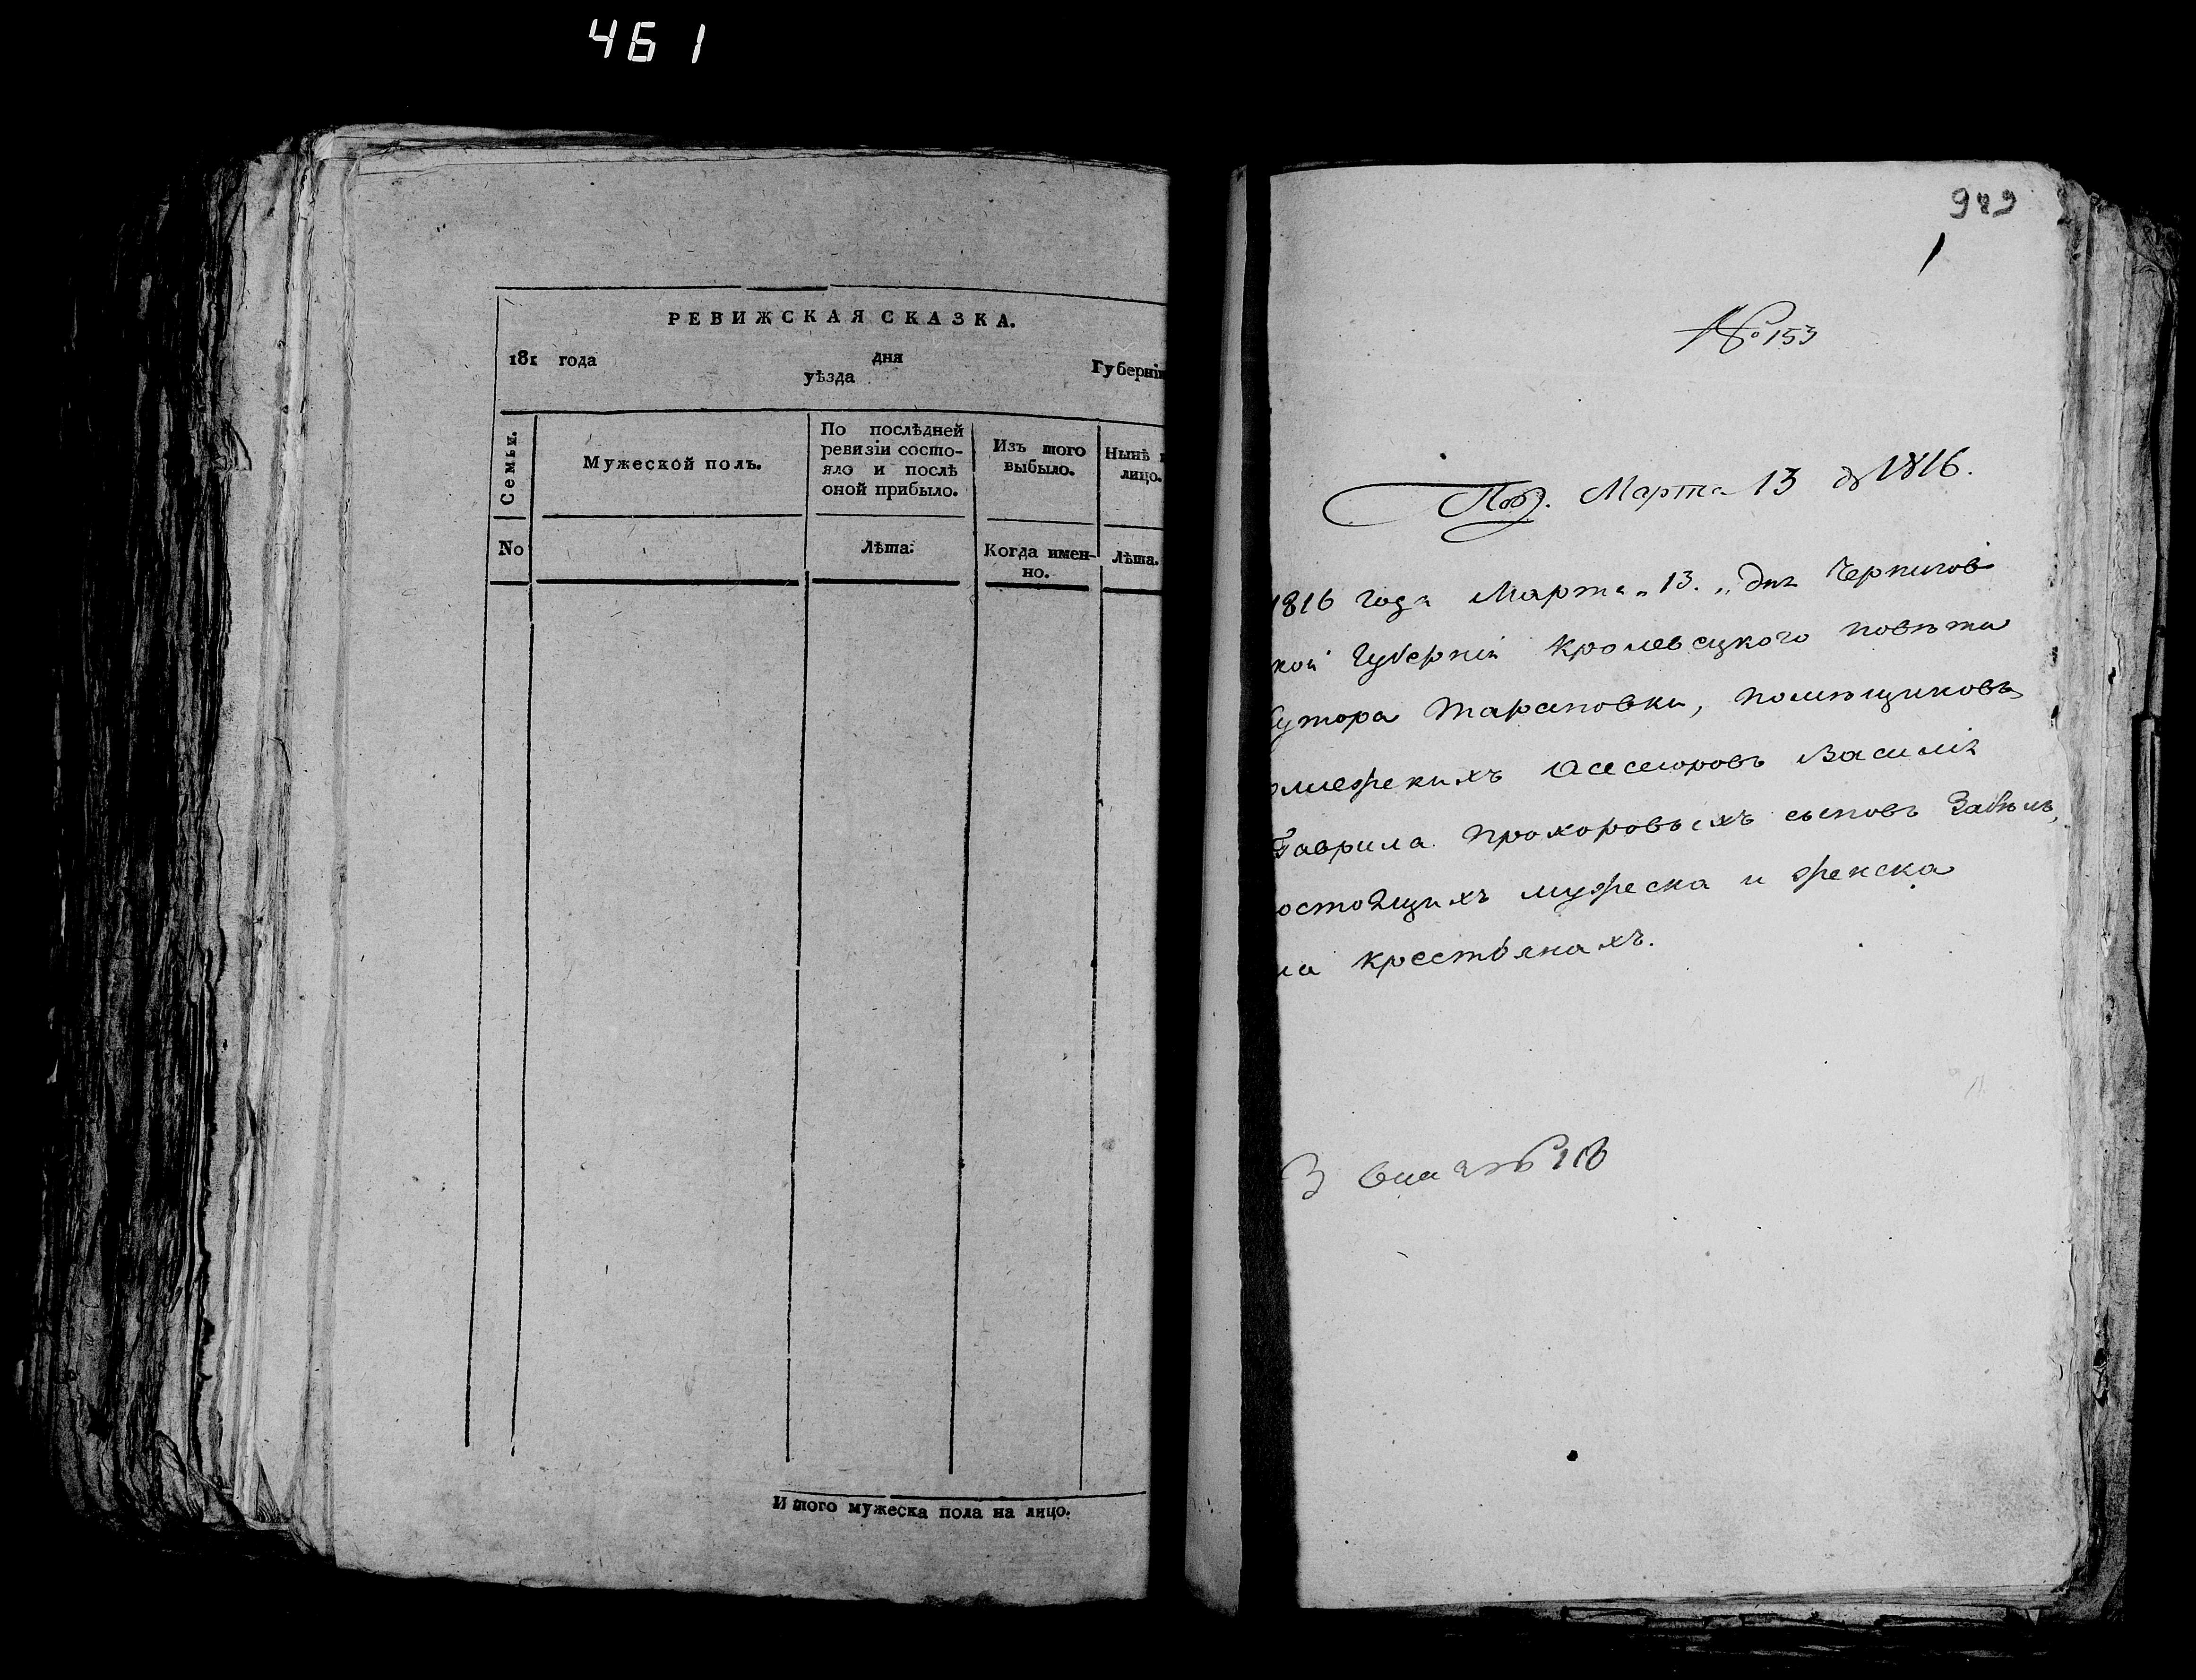 461
РЕВИЖСКАЯ СКАЗКА.
181 года дня Губерніи
уѣзда
Семьи.
Мужеской полъ.
По послѣдней
ревизіи состо-
яло и послѣ
оной прибыло.
Изъ того
выбыло.
Нынѣ
лицо.
No
Лѣта.
Когда имен-
но.
Лѣта.
Итого мужеска пола на лицо.
1
№ 153
Под. Марта 13 д 1816.
1816 года Марта „13.„ дня Чернигов
кой Губерніи Кролевецкого повѣта
хутора Тарановки, помѣщиковъ
олежскихъ асессоровъ Василія
Гаврила Прохоровыхъ сыновъ Забѣлъ,
остоящихъ мужеска и женска
ла крестьянахъ.